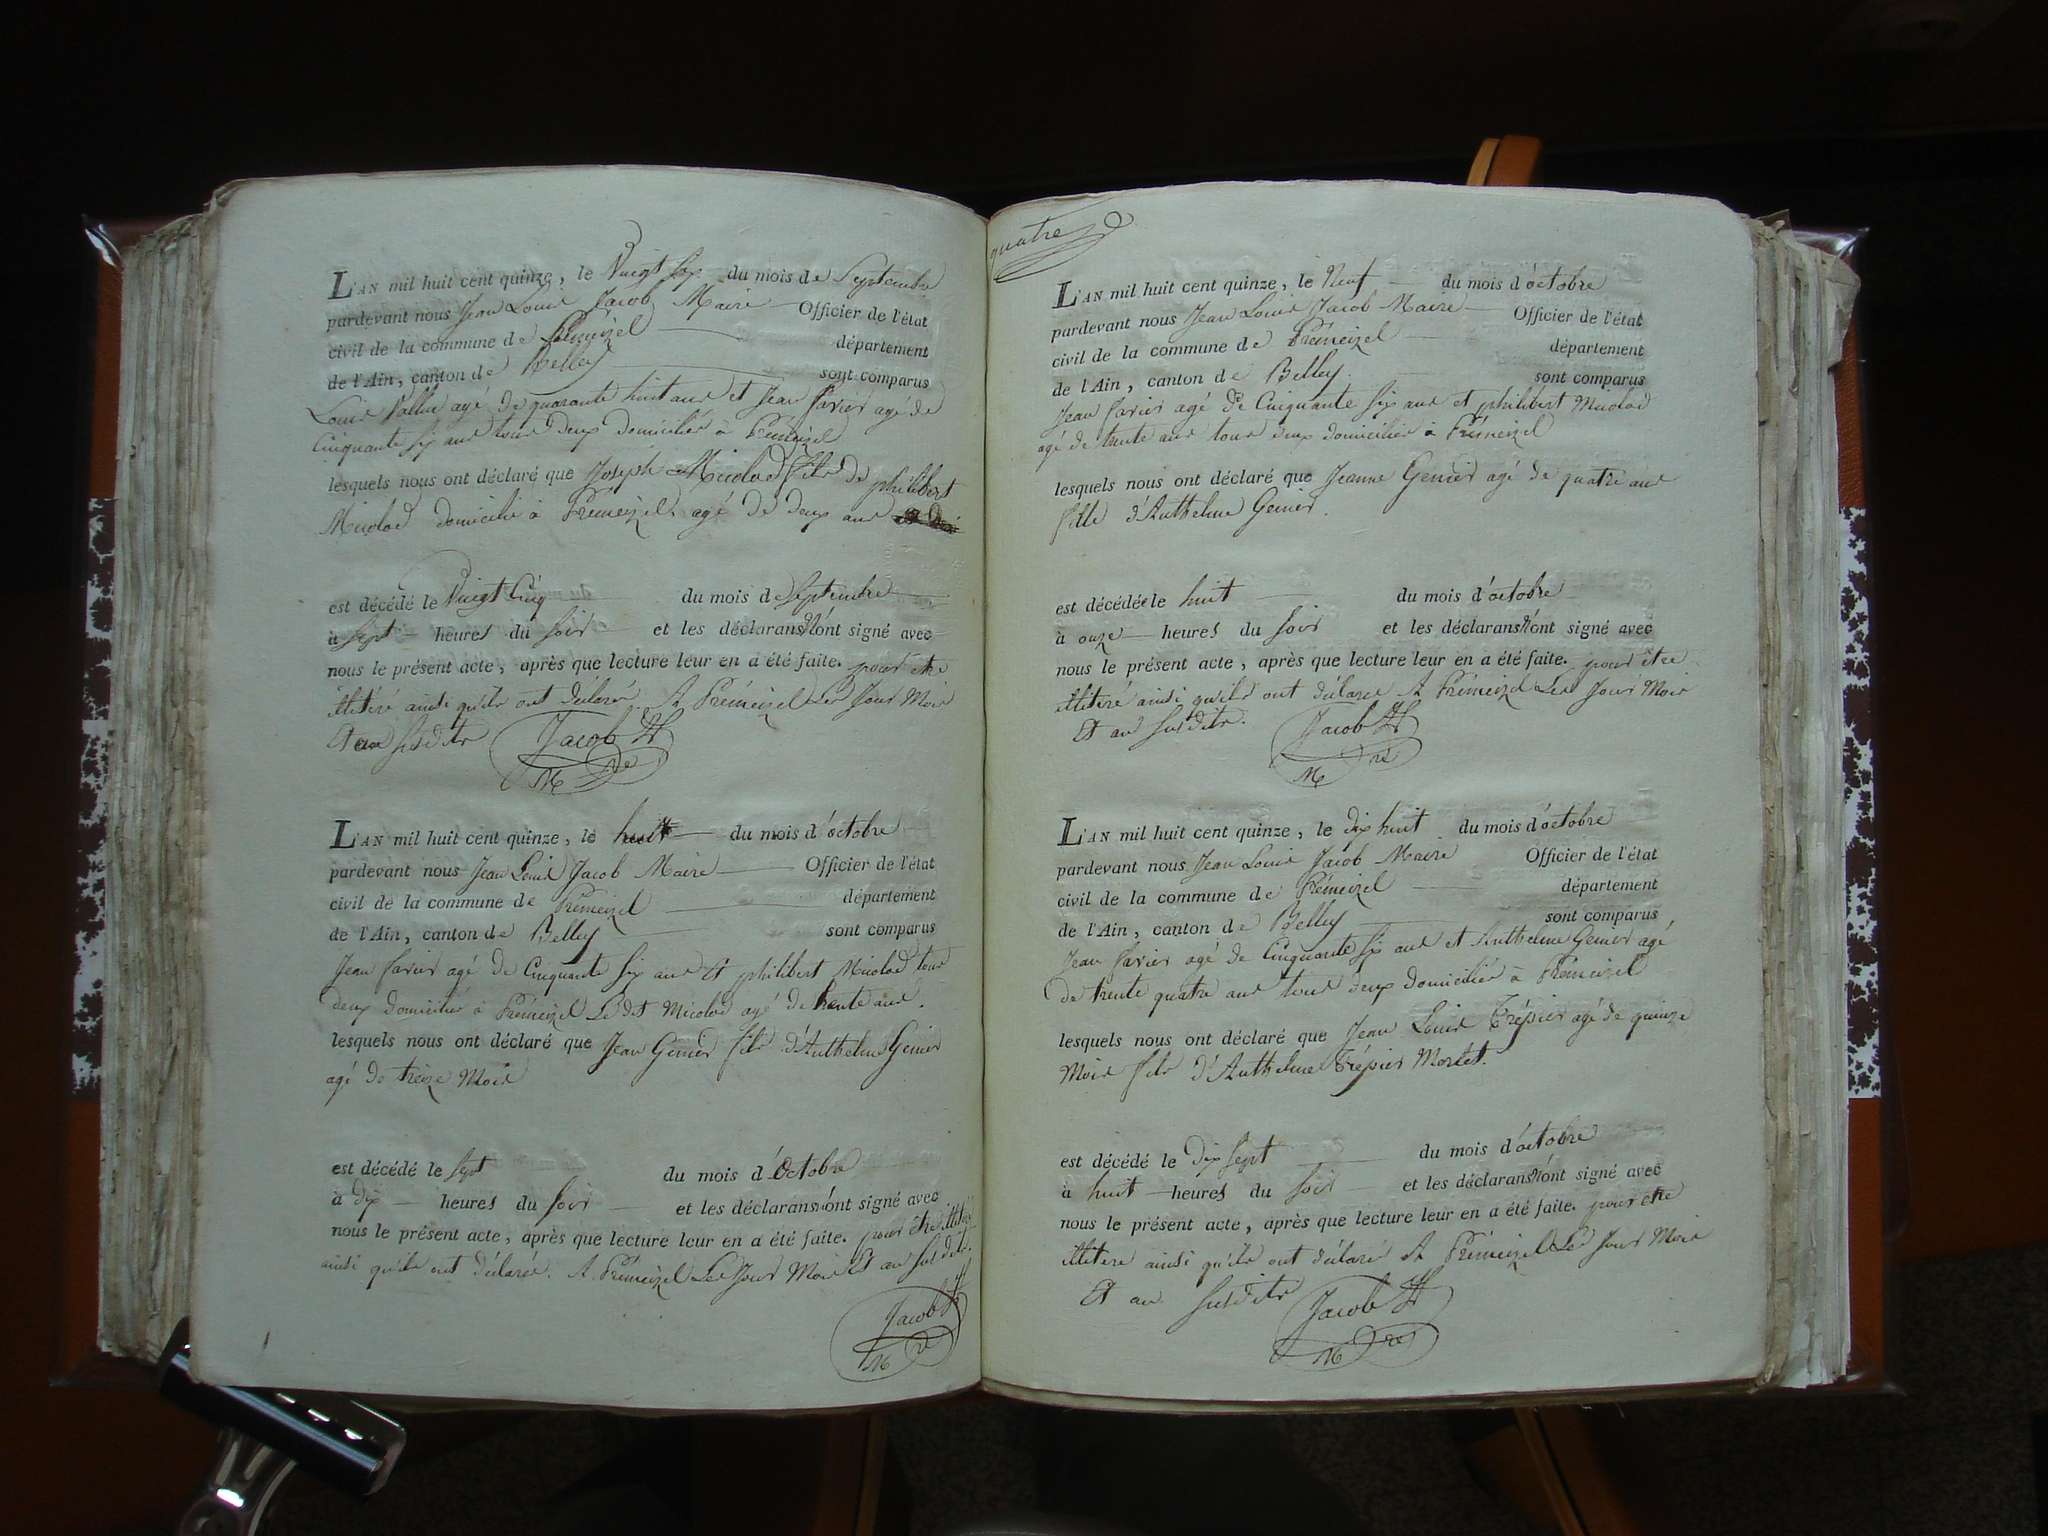 L'AN mil huit cent quinze, le Vingt Six du mois de Septembre
pardevant nous Jean Louis Jacob Maire Officier de l'état
civil de la commune de Prémeizel département
de l'Ain, canton de Belley sont comparus
Louis Pallu agé de quarante huit ans et Jean favier agé de
Cinquante six ans tous deux domiciliés à Prémeizel
lesquels nous ont déclaré que Joseph Micolod fils de philibert
Micolod domicilié à Prémeizel agé de deux ans
est décédé le Vingt Cinq du mois de Septembre
à Sept heures du soir et les déclarans n'ont signé avec
nous le présent acte, après que lecture leur en a été faite. pour être
illitéré ainsi qu'ils ont déclaré. A Prémeizel Les Jour Mois
Et an susdits
Jacob
M re
L'AN mil huit cent quinze, le huit du mois d'octobre
pardevant nous Jean Louis Jacob Maire Officier de l'état
civil de la commune de Prémeizel département
de l'Ain, canton de Belley sont comparus
Jean favier agé de Cinquante six ans Et philibert Micolod tous
deux domiciliés à Prémeizel Le dit Micolod agé de trente ans.
lesquels nous ont déclaré que Jean Genier fils d'Anthelme Genier
agé de treize Mois
est décédé le sept du mois d'Octobre
à dix heures du soir et les déclarans n'ont signé avec
nous le présent acte, après que lecture leur en a été faite. pour être illitéré
ainsi qu'ils ont déclaré. A Prémeizel Les Jour Mois Et an susdits.
Jacob
M re
quatre
L'AN mil huit cent quinze, le Neuf du mois d'octobre
pardevant nous Jean Louis Jacob Maire Officier de l'état
civil de la commune de Prémeizel département
de l'Ain, canton de Belley. sont comparus
Jean favier agé de Cinquante six ans et philibert Micolod
agé de trente ans tous deux domiciliés à Prémeizel
lesquels nous ont déclaré que Jeanne Genier agé de quatre ans
fille d'Anthelme Genier.
est décédée le huit du mois d'octobre
à onze heures du soir et les déclarans n'ont signé avec
nous le présent acte, après que lecture leur en a été faite. pour être
illitéré ainsi qu'ils ont déclaré A Prémeizel Les Jour Mois
Et an susdits.
Jacob
M re
L'AN mil huit cent quinze, le dix huit du mois d'octobre
pardevant nous Jean Louis Jacob Maire Officier de l'état
civil de la commune de Prémeizel département
de l'Ain, canton de Belley sont comparus
Jean favier agé de Cinquante six ans et Anthelme Genier agé
de trente quatre ans tous deux domiciliés à Prémeizel
lesquels nous ont déclaré que Jean Louis Trépier agé de quinze
Mois fils d'Anthelme Trépier Morlet.
est décédé le dix sept du mois d'octobre
à huit heures du soir et les déclarans n'ont signé avec
nous le présent acte, après que lecture leur en a été faite. pour etre
illitere ainsi qu'ils ont déclaré A Prémeizel Les Jour Mois
Et an susdits
Jacob
M re